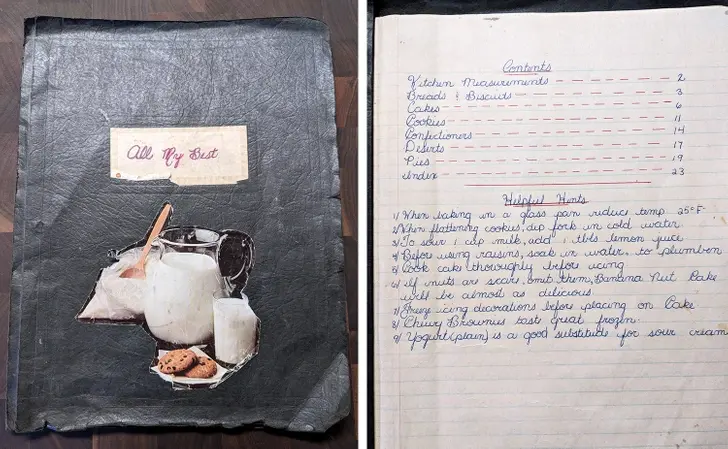 All My Best
Contents
Kitchen Measurements - - - - - - - - 2
Breads & Biscuits - - - - - - - - 3
Cakes - - - - - - - - 6
Cookies - - - - - - - - 11
Confectioners - - - - - - - - 14
Deserts - - - - - - - - 17
Pies - - - - - - - - 19
Index - - - - - - - - 23
Helpful Hints
1) When baking in a glass pan reduce temp. 25°F.
2) When flattening cookies, dip fork in cold water.
3) To sour 1 cup milk, add 1 tbls lemon juice
4) Before using raisins, soak in water, to plumben
5) Cook cake thoroughly before icing
6) If nuts are scarse, omit them, Banana Nut Cake
will be almost as delicious.
7) Freeze icing decorations before placing on Cake
8) Chewy Brownies tast great frozen.
9) Yogurt (plain) is a good substitude for sour cream